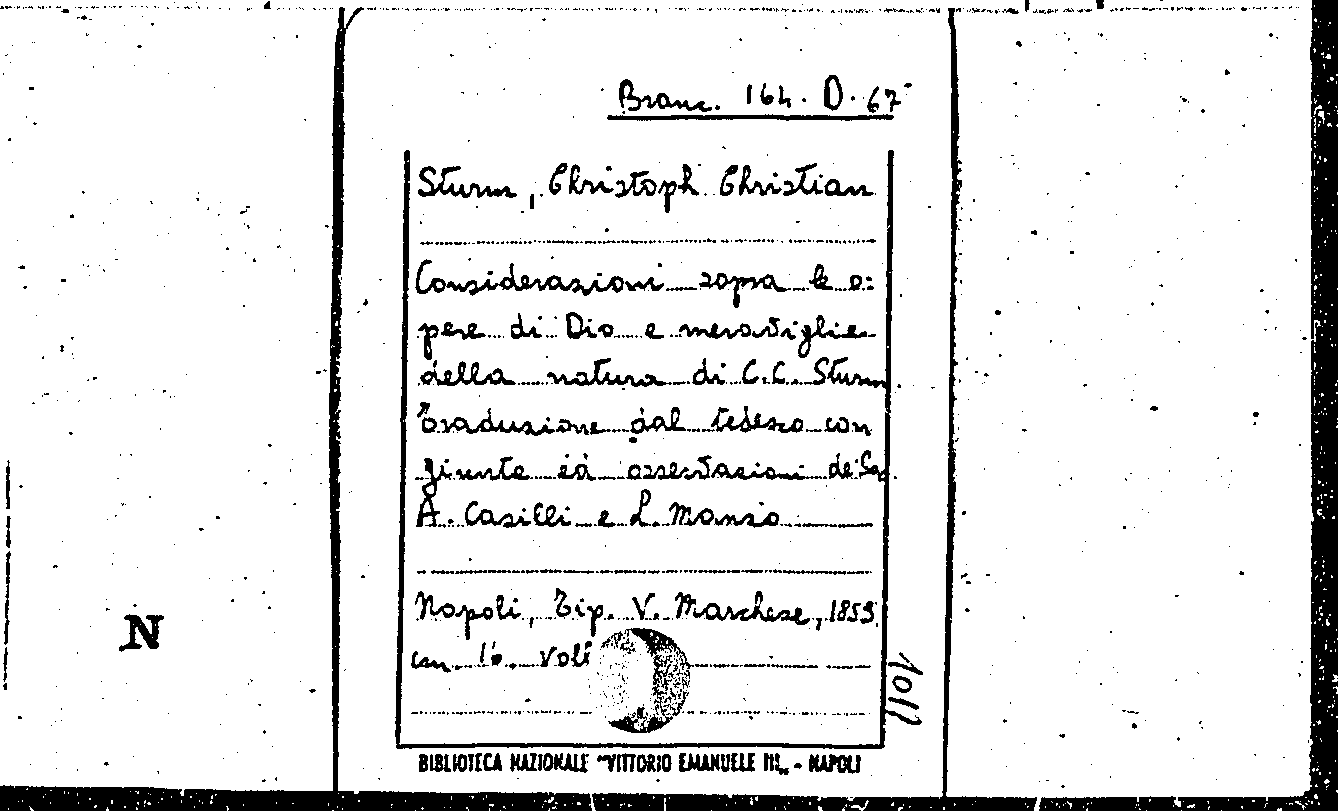 Branc. 164. D. 67
Sturm, Christoph Christian
Considerazioni sopra le o=
pere di Dio e meraviglie
della natura di C.C. Sturm.
Traduzione dal tedesco con
giunte ed osservazioni de'
A. Casilli e L. Manzo
Napoli, Tip. V. Marchese, 1859
cm. 16. Voll
N
BIBLIOTECA NAZIONALE "VITTORIO EMANUELE III„ - NAPOLI